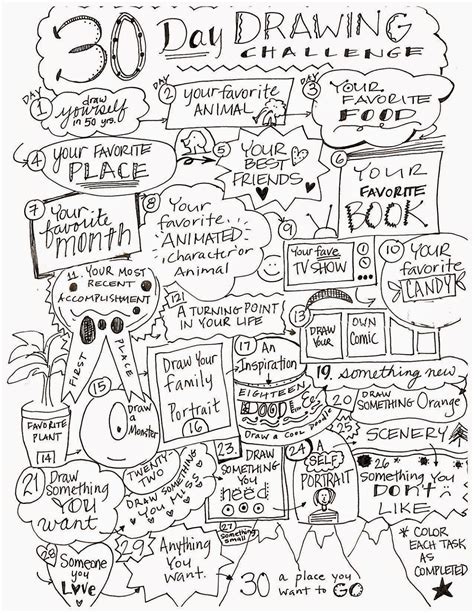 30 Day DRAWING
CHALLENGE
DAY
1
draw
yourself
in 50 yrs.
DAY
2
your favorite
ANIMAL
DAY
3
YOUR
FAVORITE
FOOD
4
YOUR FAVORITE
PLACE
5
YOUR
BEST
FRIENDS
6
YOUR
FAVORITE
BOOK
7
Your
favorite
month
8
Your
favorite
ANIMATED
character or
Animal
9
Your fave
TV SHOW
10
Your
favorite
CANDY
11. YOUR MOST
RECENT
ACCOMPLISHMENT
FIRST PLACE
12!
A TURNING POINT
IN YOUR LIFE
13
DRAW
YOUR
OWN
Comic
FAVORITE
PLANT
14
15
Draw
a
Monster
Draw Your
family
Portrait
16
17
An
Inspiration
EIGHTEEN
Draw a Cool Doodle
19, something new
20
DRAW
SOMETHING Orange
21
Draw
Something
YOU
want
TWENTY-
TWO
DRAW SOMETHING
YOU MISS
23.
DRAW
SOMETHING
YOU
need
24
A
SELF
PORTRAIT
25
SCENERY
26
something
You
DON'T
LIKE
27
something
small
28
Someone
you
LOVE
29
Anything
You
Want.
30 a place you
want to GO
* COLOR
EACH TASK
AS
COMPLETED